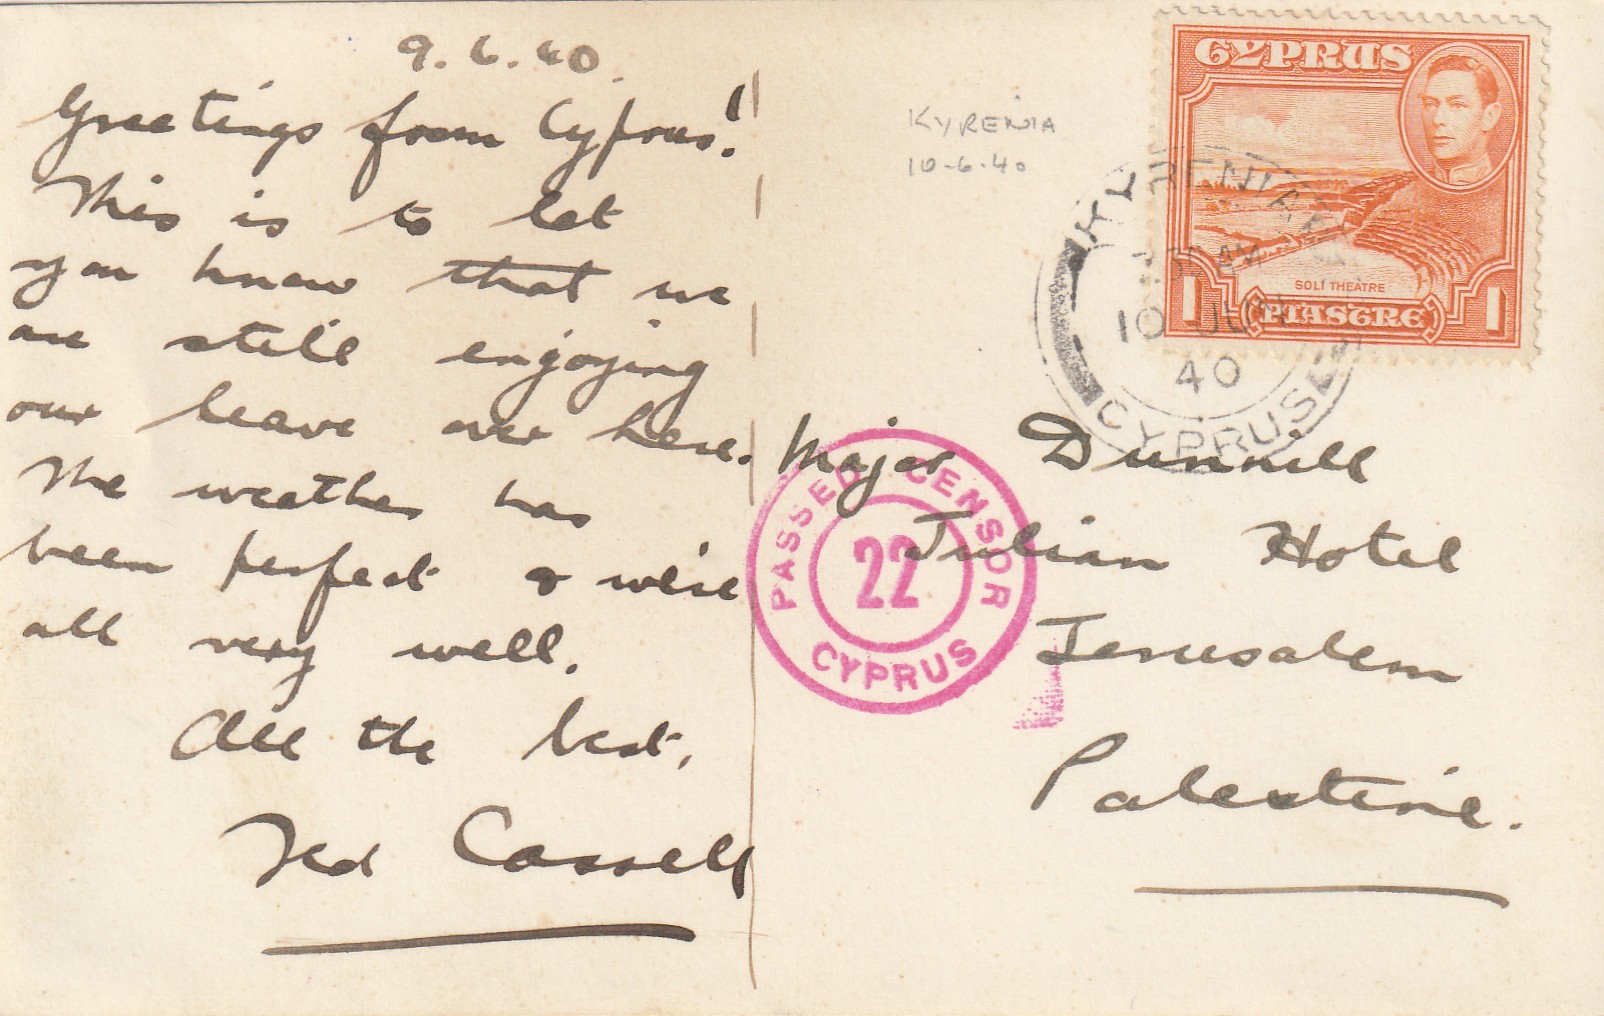 9.6.40.
Greetings from Cyprus!
This is to let
you know that we
are still enjoying
our leave over here.
The weather has
been perfect & we're
all very well.
All the best,
Ted Cassell
KYRENIA
10-6-40
CYPRUS
SOLI THEATRE
1 PIASTRE 1
KYRENIA
30 AM
10 JUN
40
CYPRUS
PASSED CENSOR
22
CYPRUS
Major Dunnill
Julian Hotel
Jerusalem
Palestine.